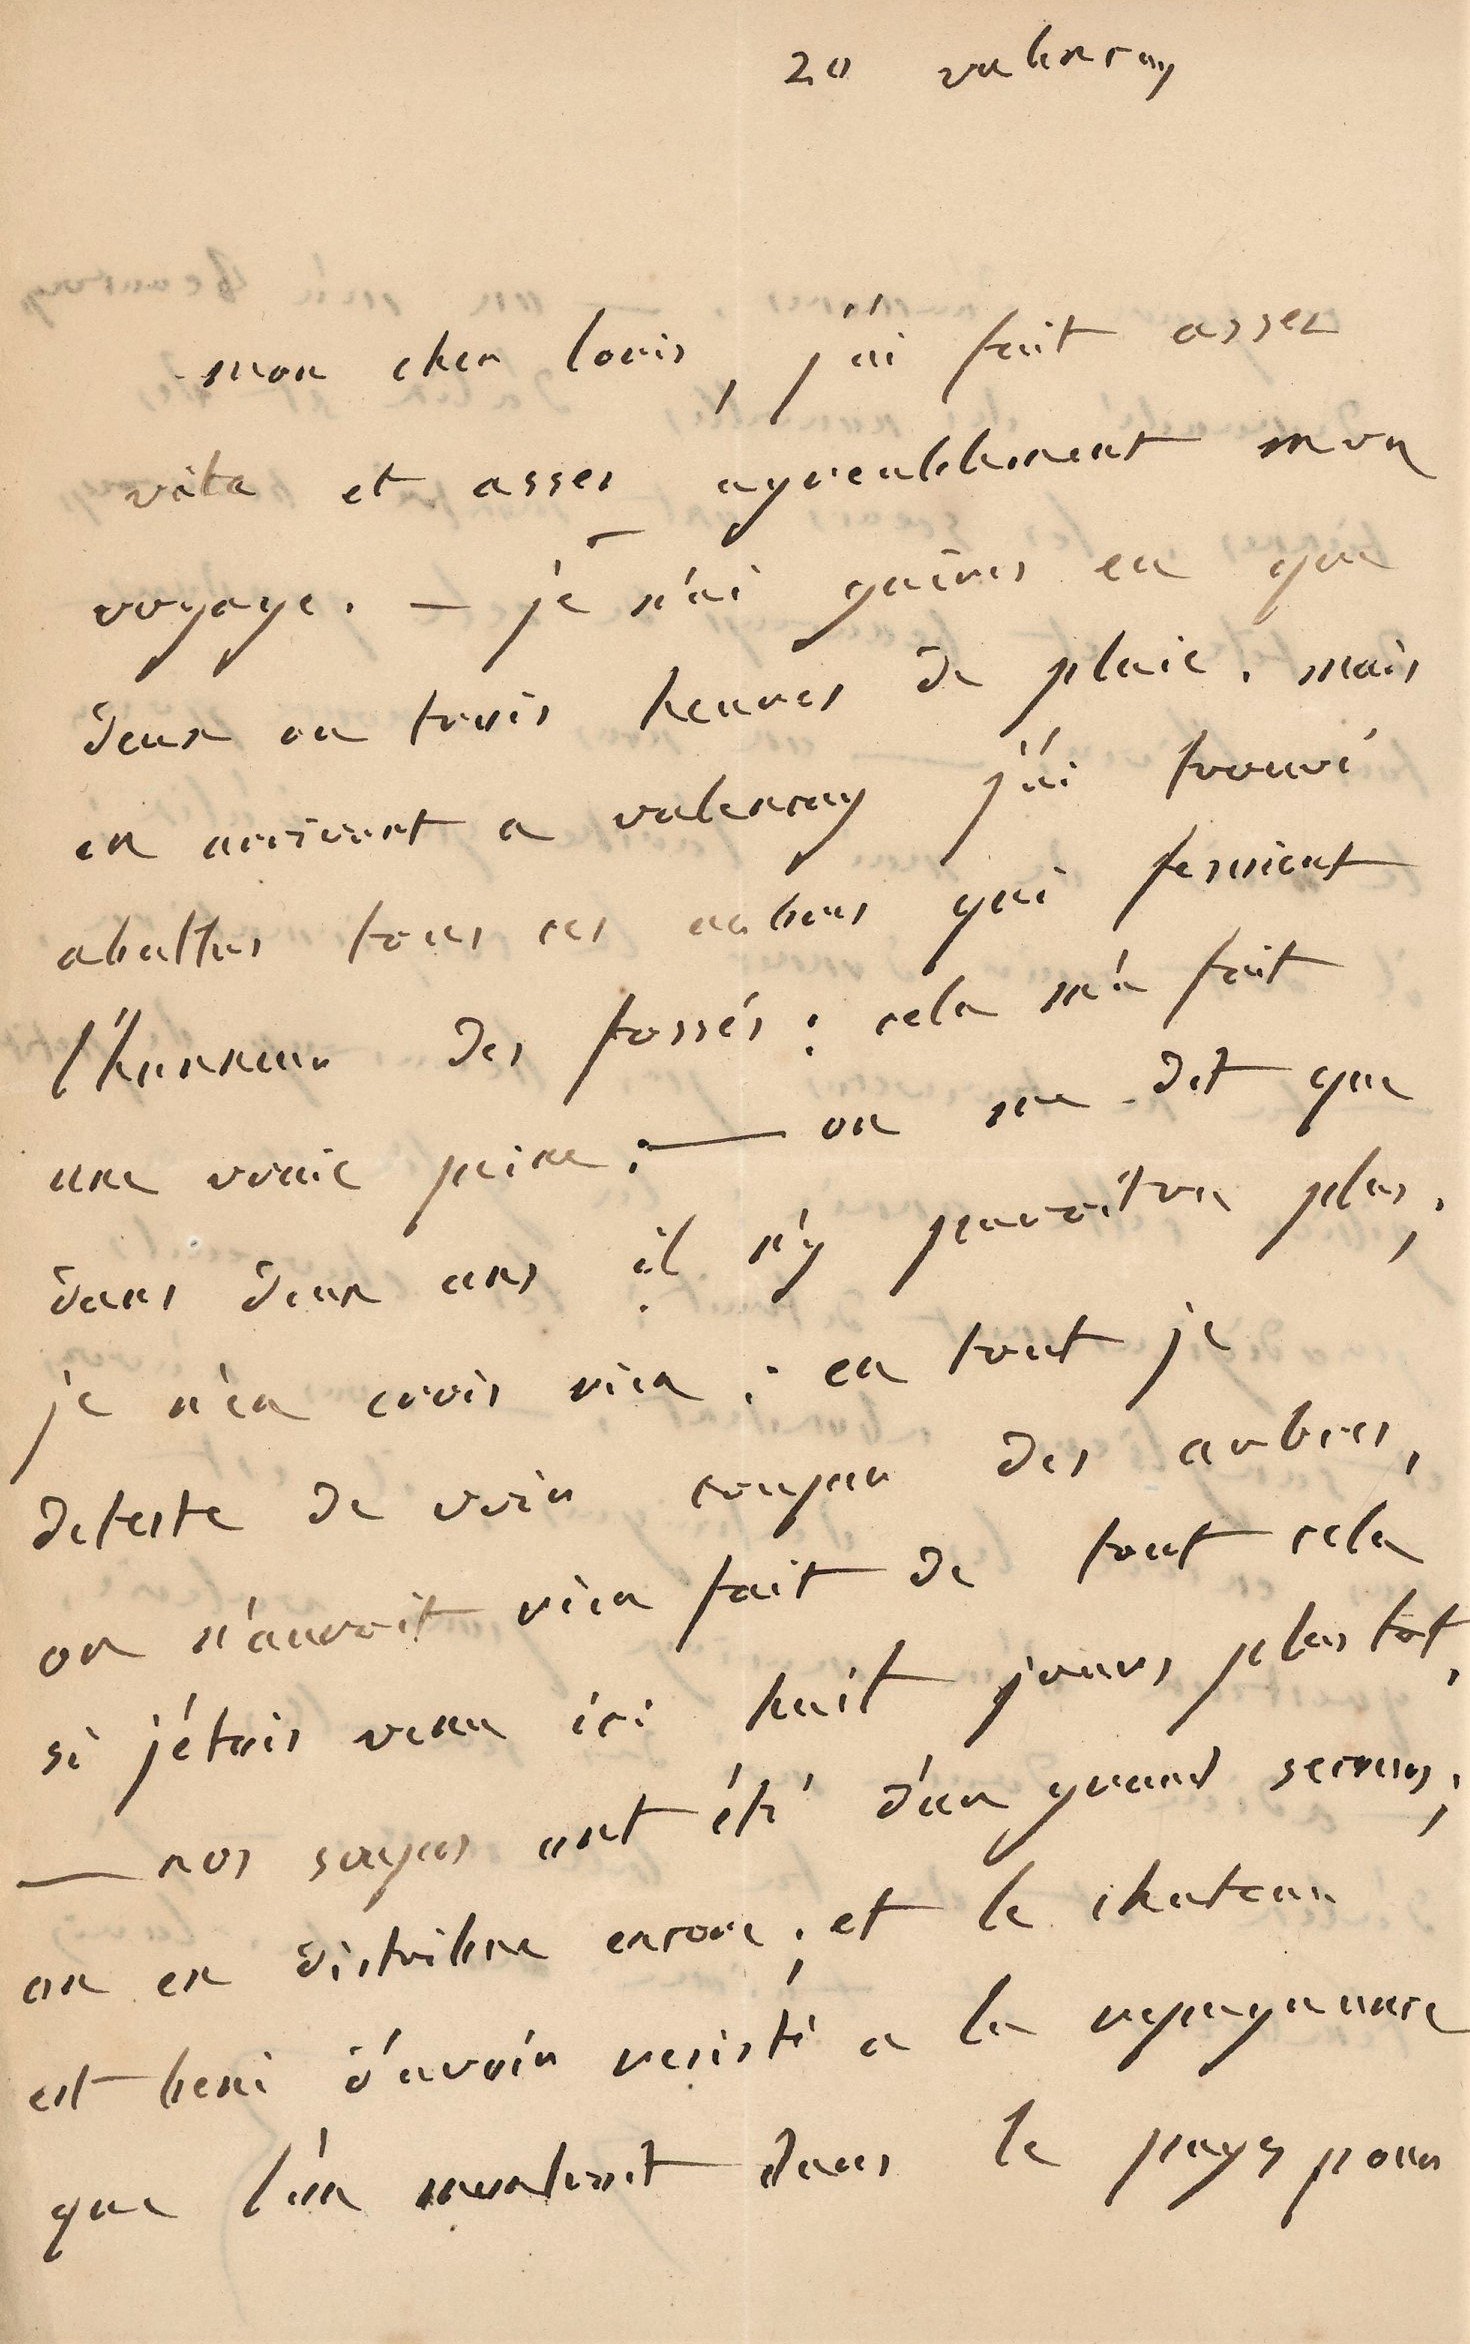 20 valencay
mon cher louis, j'ai fait assez
vite et assez agreablement mon
voyage. — je n'ai guères eu que
deux ou trois heures de pluie. mais
en arrivant a valencay j'ai trouvé
abattus tous ces arbres qui fesoient
l'honneur des fossés : cela m'a fait
une vraie peine. — on me dit que
dans deux ans il n'y paroitra plus ;
je n'en crois rien : en tout je
deteste de voir couper des arbres,
on n'auroit rien fait de tout cela
si j'étois venu ici huit jours plustot,
— nos soupes ont été d'un grand secours ;
on en distribue encore ; et le chateau
est beni d'avoir resisté a la repugnance
que l'on montroit dans le pays pour